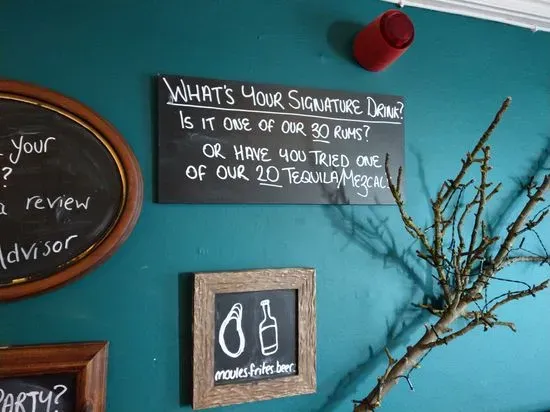 WHAT'S YOUR SIGNATURE DRINK?
IS IT ONE OF OUR 30 RUMS?
OR HAVE YOU TRIED ONE
OF OUR 20 TEQUILA/MEZCAL
your
?
a review
Advisor
moules.frites.beer.
PARTY?